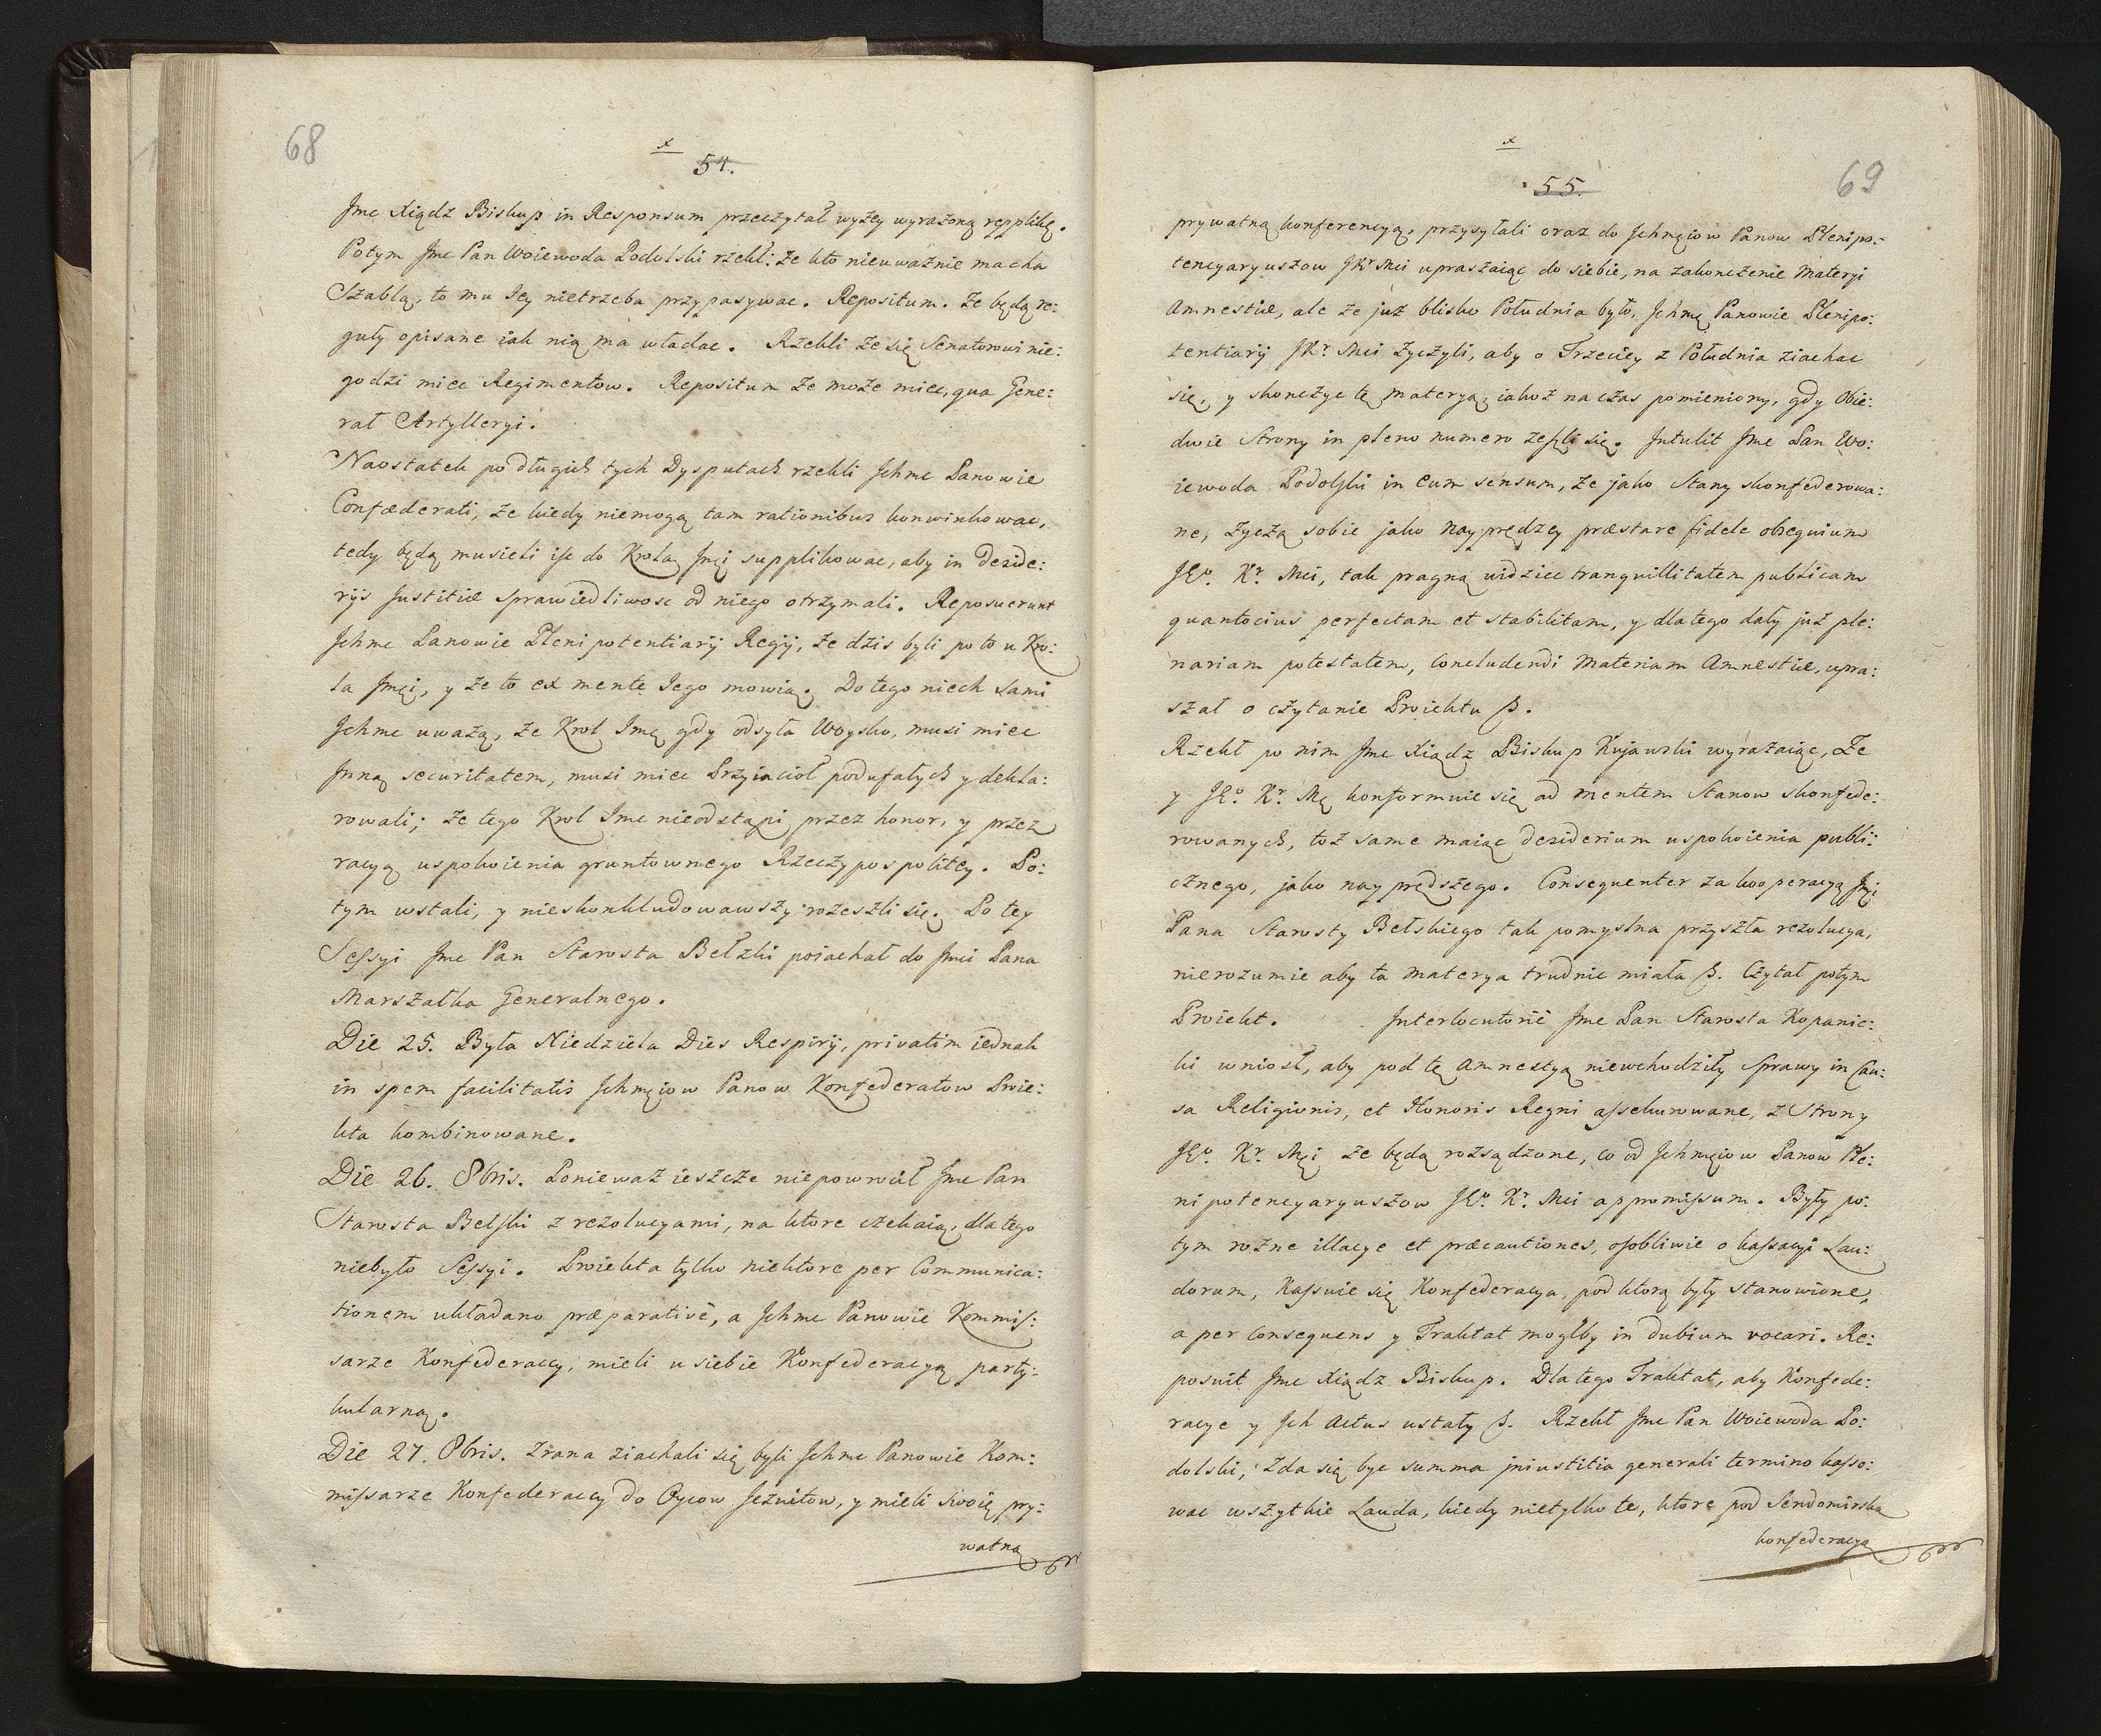 68
x
54.
Jmc Xiądz Biskup in Responsum przeczytał wyżey wyrażoną repplikę.
Potym Jmc Pan Woiewoda Podolski rzekł: że kto nieuważnie macha
Szablą, to mu Jey nietrzeba przypasywac. Repositum. Że będą re:
guły opisane iak nią ma władac. Rzekli że się Senatorowi nie:
godzi miec Regimentow. Repositum że może miec, qua Gene:
rał Artylleryi.
Naostatek po długich tych Dysputach rzekli Jchmc Panowie
Confœderati, że kiedy niemogą tam rationibus konwinkowac,
tedy będą musieli iśc do Krola Jmci supplikowac, aby in deside:
rijs Justitiæ sprawiedliwosc od niego otrzymali. Reposuerunt
Jchmc Panowie Plenipotentiarij Regij, że dzis byli po to u Kro:
la Jmci, y że to ex mente Jego mowią. Do tego niech sami
Jchmc uważą, że Krol Jmc gdy odsyła Woysko, musi miec
Jnną securitatem, musi miec Przyiacioł podufałych y dekla:
rowali; że tego Krol Jmc nieodstąpi przez honor, y przez
racyą uspokoienia gruntownego Rzeczypospolitey. Po:
tym wstali, y nieskonkludowawszy rozeszli się. Po tey
Sessyi Jmc Pan Starosta Bełzki poiachał do Jmci Pana
Marszałka Generalnego.
Die 25. Była Niedziela Dies Respirij, privatim iednak
in spem facilitatis Jchmciow Panow Konfederatow Proie:
kta kombinowane.
Die 26. 8bris. Ponieważ ieszcze niepowrócił Jmc Pan
Starosta Bełski z rezolucyami, na ktore czekaiąc, dla tego
niebyło Sessyi. Proiekta tylko niektore per Communica:
tionem układano præparativè, a Jchmc Panowie Kommis:
sarze Konfederaccy, mieli u siebie Konfederacyą party:
kularną.
Die 27. 8bris. Zrana ziachali się byli Jchmc Panowie Kom:
missarze Konfederaccy do Oycow Jezuitow, y mieli swoię pry:
watną
x
55.
69
prywatną konferencyą, przysyłali oraz do Jchmciow Panow Plenipo:
tencyaryuszow JKr Mci upraszaiąc do siebie, na zakonczenie Materyi
Amnestiæ, ale że już blisko Południa było, Jchmc Panowie Plenipo:
tentiarij JKr. Mci życzyli, aby o Trzeciey z Południa ziachac
się, y skonczyc tę materyą, iakoż na czas pomieniony, gdy Obie:
dwie Strony in pleno numero zeszli się. Jntulit Jmc Pan Wo:
iewoda Podolski in eum sensum, że jako Stany skonfederowa:
ne, życzą sobie jako nayprędzey præstare fidele obsequium
JEo. Kr. Mci, tak pragną widziec tranquillitatem publicam
quantocius perfectam et stabilitam, y dlatego dały już ple:
nariam potestatem, concludendi Materiam Amnestiæ, upra:
szał o czytanie Proiektu ß.
Rzekł po nim Jmc Xiądz Biskup Kujawski wyrażaiąc, Że
y JEo. Kr. Mc konformuie się ad mentem Stanow skonfede:
rowanych, toż same maiąc desiderium uspokoienia publi:
cznego, jako nayprędszego. Consequenter za kooperacyą Jmci
Pana Starosty Bełskiego tak pomyslna przyszła rezolucya,
nierozumie aby ta materya trudnic miała ß. Czytał potym
Proiekt. Jnterlocutoriè Jmc Pan Starosta Kopanic:
ki wniosł, aby pod tę Amnestyą niewchodziły Sprawy in Cau:
sa Religionis, et Honoris Regni assekurowane, z Strony
JEo. Kr. Mci że będą rozsądzone, co od Jchmciow Panow Ple:
nipotencyaryuszow JEo. Kr. Mci appromissum. Były po:
tym rożne illacye et præcautiones, osobliwie o kassacyi Lau:
dorum, Kassuie się Konfederacya, pod ktorą były stanowione,
a per consequens y Traktat mogłby in dubium vocari. Re:
posuit Jmc Xiądz Biskup. Dlatego Traktat, aby Konfede:
racye y Jch Actus ustały ß. Rzekł Jmc Pan Woiewoda Po:
dolski, Zda się byc summa jniustitia generali termino kasso:
wac wszytkie Lauda, kiedy nietylko te, ktore pod Sendomirską
konfederacyą